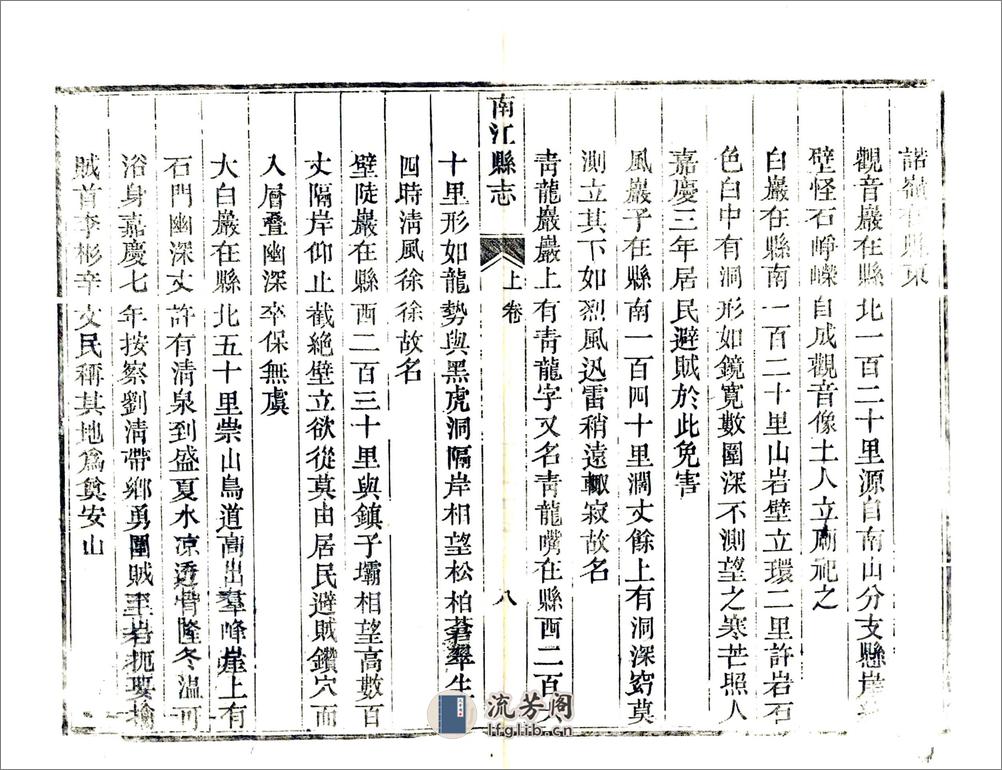 諧嶺在縣東
觀音巖在縣北一百二十里源自南山分支縣崖
壁怪石崢嶸自成觀音像土人立廟祀之
白巖在縣南一百二十里山岩壁立環二里許岩石
色白中有洞形如鏡寬數圍深不測望之寒芒照人
嘉慶三年居民避賊於此免害
風巖子在縣南一百四十里濶丈餘上有洞深窈莫
測立其下如烈風迅雷稍遠輙寂故名
靑龍巖巖上有靑龍字又名靑龍嘴在縣西二百
南江縣志 上卷 八
十里形如龍勢與黑虎洞隔岸相望松柏蒼翠生
四時淸風徐徐故名
壁陡巖在縣西二百三十里與鎮子壩相望高數百
丈隔岸仰止截絶壁立欲從莫由居民避賊鑽穴而
入層叠幽深卒保無虞
大白巖在縣北五十里崇山鳥道高出羣峰崖上有
石門幽深丈許有淸泉到盛夏水凉透骨隆冬溫可
浴身嘉慶七年按察劉淸帶鄉勇圍賊至岩扼要擒
賊首李彬辛文民稱其地爲奠安山
流芳阁
lfglib.cn